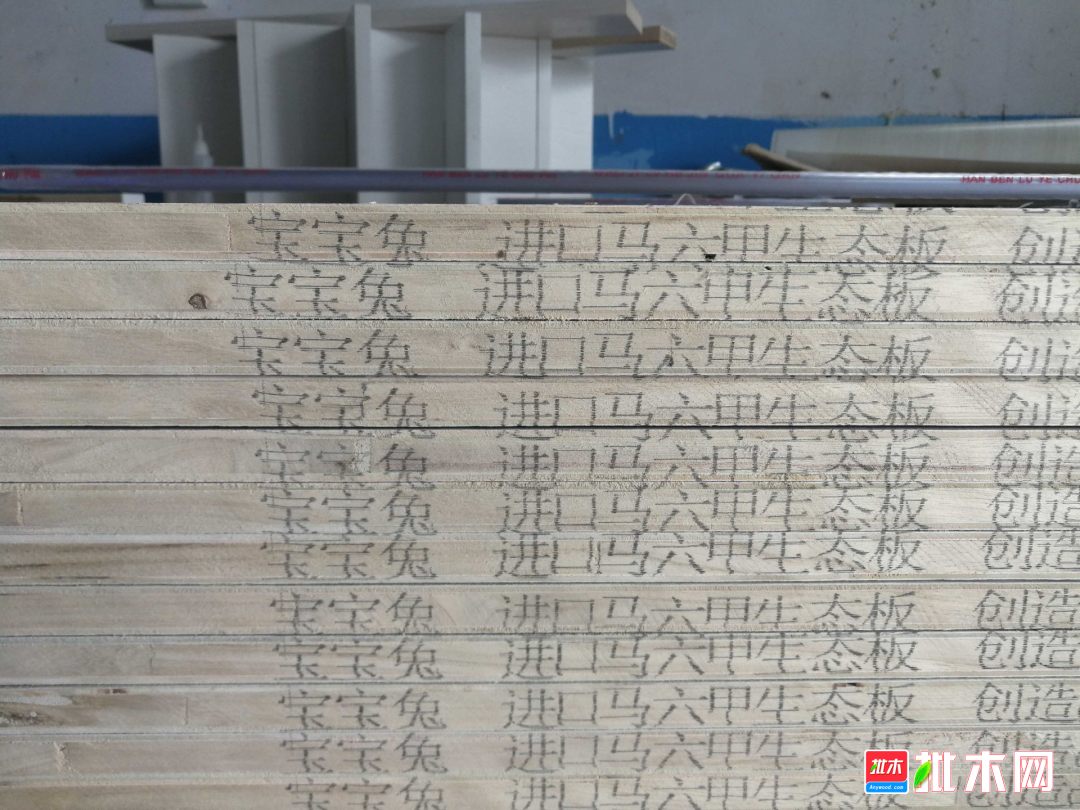 HAN BEN LU YE CHU
宝宝兔 进口马六甲生态板 创
宝宝兔 进口马六甲生态板 创造
宝宝兔 进口马六甲生态板 创造
宝宝兔 进口马六甲生态板 创造
宝宝兔 进口马六甲生态板 创造
宝宝兔 进口马六甲生态板 创造
宝宝兔 进口马六甲生态板 创造
宝宝兔 进口马六甲生态板 创造
宝宝兔 进口马六甲生态板 创造
宝宝兔 进口马六甲生态板 创造
宝宝兔 进口马六甲生态板
宝宝兔 进口马六甲生态板
批木 批木网
Anywood.com